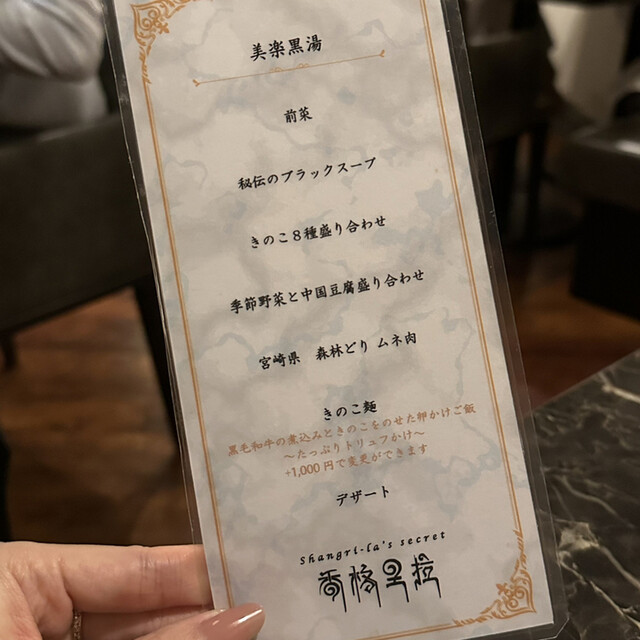 美楽黒湯
前菜
秘伝のブラックスープ
きのこ8種盛り合わせ
季節野菜と中国豆腐盛り合わせ
宮崎県 森林どり ムネ肉
きのこ麺
黒毛和牛の煮込みときのこをのせた卵かけご飯
～たっぷりトリュフかけ～
+1,000円で変更ができます
デザート
shangri-la's secret
香格里拉